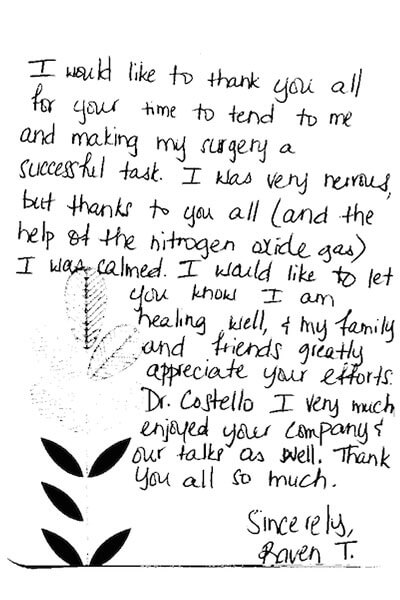 I would like to thank you all
for your time to tend to me
and making my surgery a
successful task. I was very nervous,
but thanks to you all (and the
help of the nitrogen oxide gas)
I was calmed. I would like to let
you know I am
healing well, & my family
and friends greatly
appreciate your efforts.
Dr. Costello I very much
enjoyed your company &
our talks as well. Thank
you all so much.
Sincerely,
Raven T.